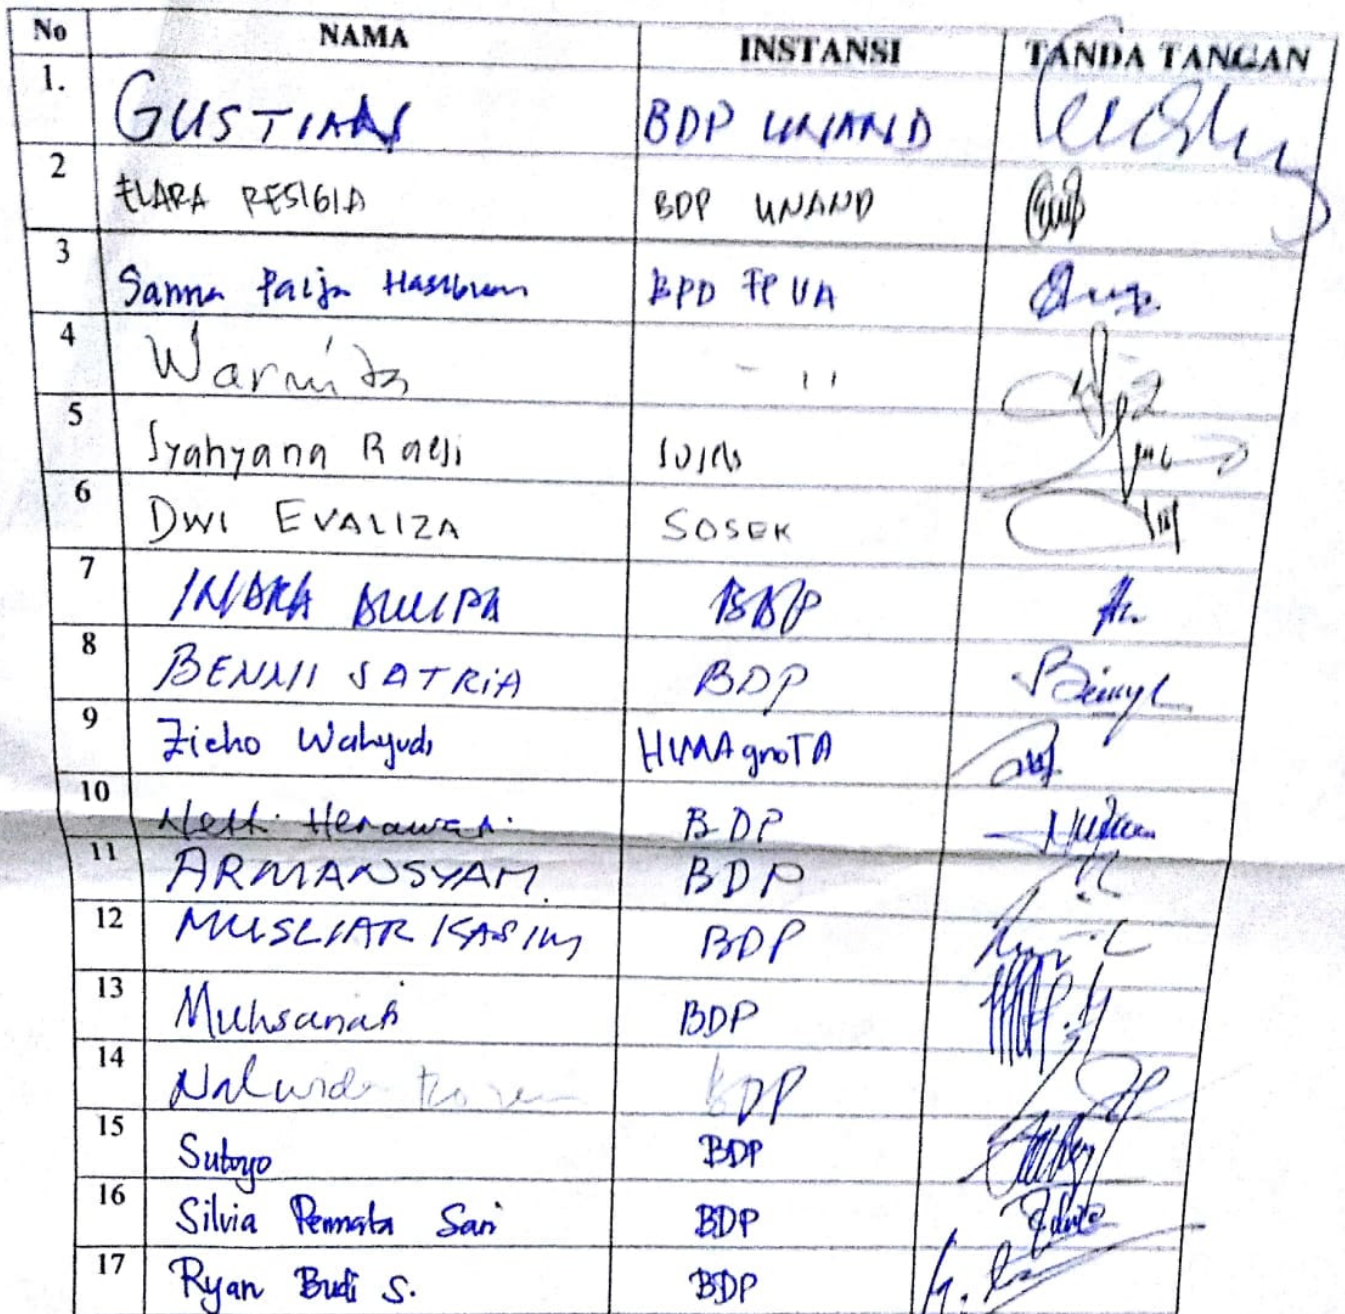 No NAMA INSTANSI TANDA TANGAN
1. GUSTIAN BDP UNAND
2 ELARA RESIGIA BDP UNAND
3 Sanna Paija Hasibuan BPD FP UA
4 Warnita - 11
5 Syahyana Raesi
6 DWI EVALIZA SOSEK
7 INDRA DWIPA BDP
8 BENNII SATRIA BDP
9 Zicho Wahyudi HIMAgroTA
10 Netti Herawati BDP
11 ARMANSYAH BDP
12 MUSLIAR KASIM BDP
13 Muhsanati BDP
14 Nalwida BDP
15 Sutoyo BDP
16 Silvia Permata Sari BDP
17 Ryan Budi S. BDP